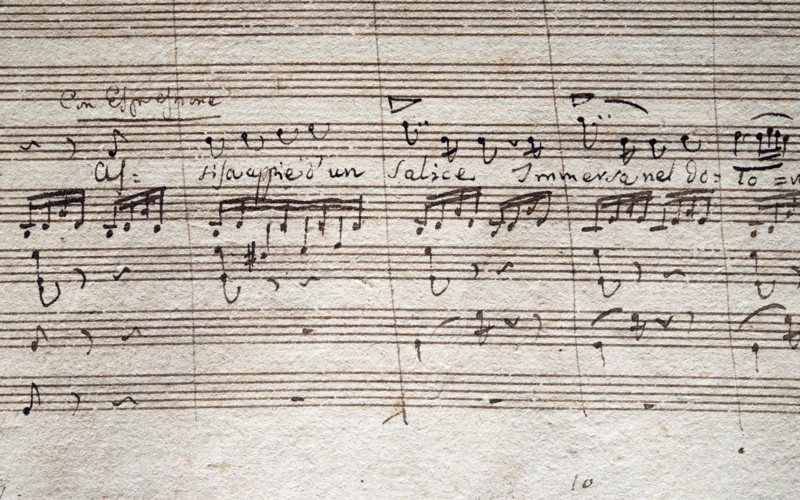 Con Espressione
As= sisa appiè d'un Salice Immersa nel do= lo =
10